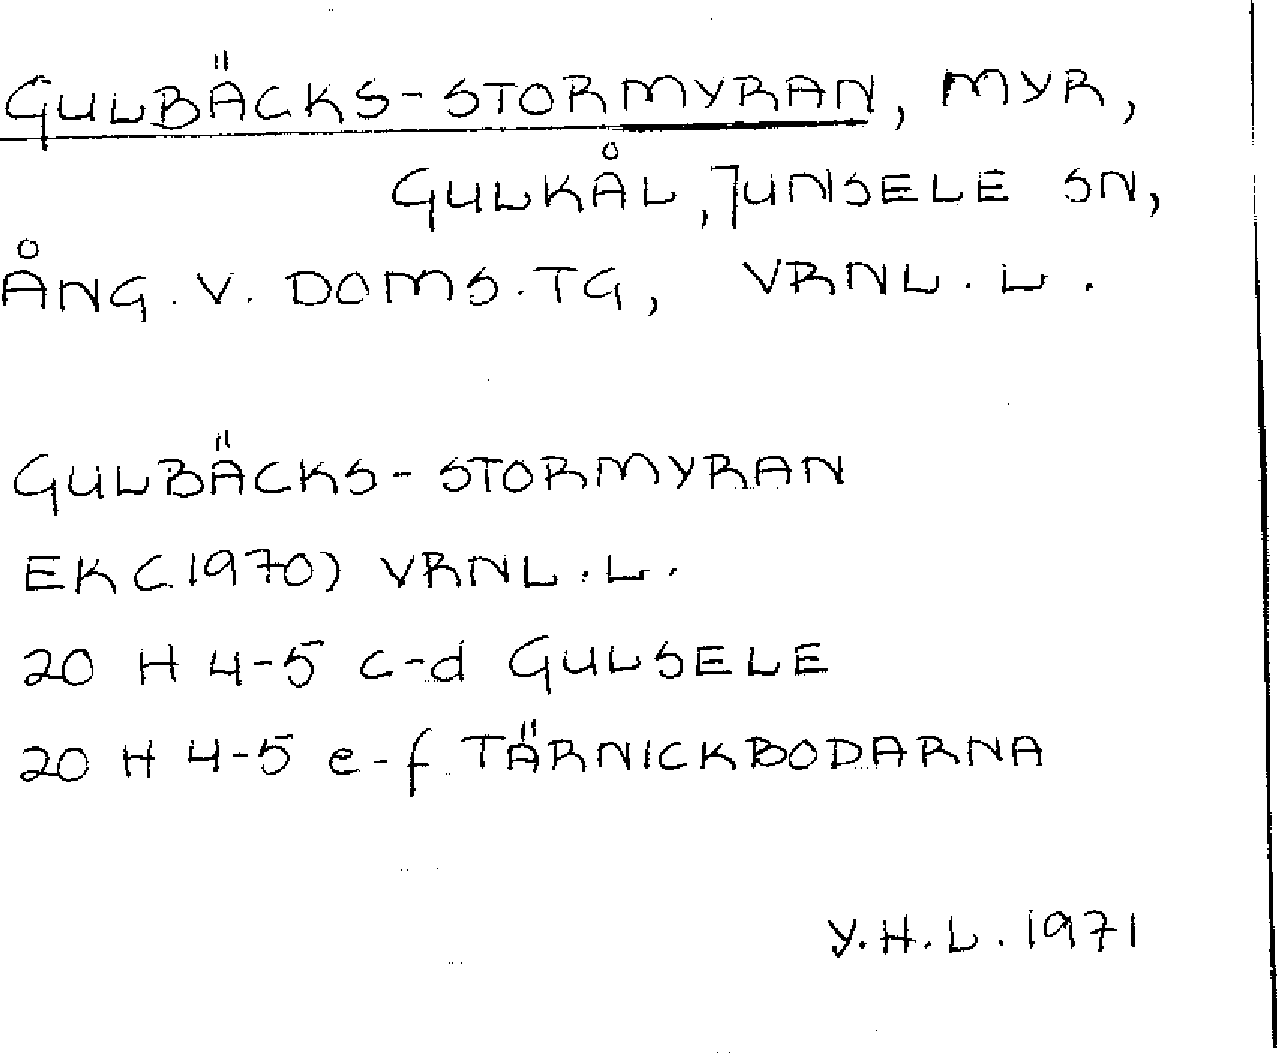 GULBÄCKS-STORMYRAN, MYR,
GULKÅL, JUNSELE SN,
ÅNG. V. DOMS. TG, VRNL. L.
GULBÄCKS-STORMYRAN
EK (1970) VRNL. L.
20 H 4-5 c-d GULSELE
20 H 4-5 e-f TÄRNICKBODARNA
Y.H.L. 1971